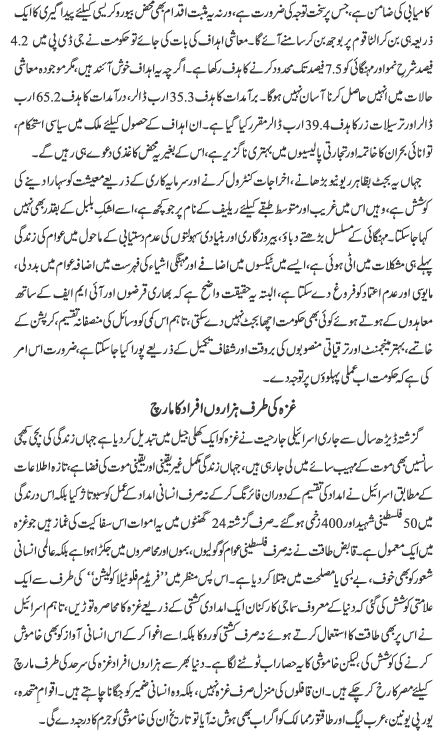 کامیابی کی ضامن ہے، جس پر سخت توجہ کی ضرورت ہے، ورنہ یہ مثبت اقدام بھی محض بیورو کریسی کیلئے پیدا گیری کا ایک
ذریعہ ہی بن کر الٹا قوم پر بوجھ بن کر سامنے آئے گا۔ معاشی اہداف کی بات کی جائے تو حکومت نے جی ڈی پی میں 4.2
فیصد شرح نمو اور مہنگائی کو 7.5 فیصد تک محدود کرنے کا ہدف رکھا ہے۔ اگرچہ یہ اہداف خوش آئند ہیں، مگر موجودہ معاشی
حالات میں انہیں حاصل کرنا آسان نہیں ہوگا۔ برآمدات کا ہدف 35.3 ارب ڈالر، درآمدات کا ہدف 65.2 ارب
ڈالر اور ترسیلات زر کا ہدف 39.4 ارب ڈالر مقرر کیا گیا ہے۔ ان اہداف کے حصول کیلئے ملک میں سیاسی استحکام،
توانائی بحران کا خاتمہ اور تجارتی پالیسیوں میں بہتری ناگزیر ہے، اس کے بغیر یہ محض کاغذی دعوے ہی رہیں گے۔
جہاں یہ بجٹ بظاہر ریونیو بڑھانے، اخراجات کنٹرول کرنے اور سرمایہ کاری کے ذریعے معیشت کو سہارا دینے کی
کوشش ہے، وہیں اس میں غریب اور متوسط طبقے کیلئے ریلیف کے نام پر جو کچھ ہے، اسے اشکِ بلبل کے بقدر بھی نہیں
کہا جاسکتا۔ مہنگائی کے مسلسل بڑھتے دباؤ، بیروزگاری اور بنیادی سہولتوں کی عدم دستیابی کے ماحول میں عوام کی زندگی
پہلے ہی مشکلات میں اٹی ہوئی ہے، ایسے میں ٹیکسوں میں اضافے اور مہنگی اشیاء کی فہرست میں اضافہ عوام میں بددلی،
مایوسی اور عدم اعتماد کو فروغ دے سکتا ہے، البتہ یہ حقیقت واضح ہے کہ بھاری قرضوں اور آئی ایم ایف کے ساتھ
معاہدوں کے ہوتے ہوئے کوئی بھی حکومت اچھا بجٹ نہیں دے سکتی، تاہم اس کمی کو وسائل کی منصفانہ تقسیم، کرپشن کے
خاتمے، بہتر مینجمنٹ اور ترقیاتی منصوبوں کی بروقت اور شفاف تکمیل کے ذریعے پورا کیا جاسکتا ہے، ضرورت اس امر
کی ہے کہ حکومت اب عملی پہلوؤں پر توجہ دے۔
غزہ کی طرف ہزاروں افراد کا مارچ
گزشتہ ڈیڑھ سال سے جاری اسرائیلی جارحیت نے غزہ کو ایک کھلی جیل میں تبدیل کر دیا ہے جہاں زندگی کی بچی کھچی
سانسیں بھی موت کے مہیب سائے میں لی جا رہی ہیں، جہاں زندگی مکمل غیر یقینی اور یقینی موت کی فضا ہے، تازہ اطلاعات
کے مطابق اسرائیل نے امداد کی تقسیم کے دوران فائرنگ کر کے نہ صرف انسانی امداد کے عمل کو سبوتاژ کیا بلکہ اس درندگی
میں 50 فلسطینی شہید اور 400 زخمی ہو گئے۔ صرف گزشتہ 24 گھنٹوں میں یہ اموات اس سفاکیت کی غماز ہیں جو غزہ
میں ایک معمول ہے۔ قابض طاقت نے نہ صرف فلسطینی عوام کو گولیوں، بموں اور محاصروں میں جکڑا ہوا ہے بلکہ عالمی انسانی
شعور کو بھی خوف، بے بسی یا مصلحت میں مبتلا کر دیا ہے۔ اس پس منظر میں ”فریڈم فلوٹیلا کولیشن“ کی طرف سے ایک
علامتی کوشش کی گئی کہ دنیا کے معروف سماجی کارکنان ایک امدادی کشتی کے ذریعے غزہ کا محاصرہ توڑیں، تاہم اسرائیل
نے اس پر بھی طاقت کا استعمال کرتے ہوئے نہ صرف کشتی کو روکا بلکہ اسے اغوا کر کے اس انسانی آواز کو بھی خاموش
کرنے کی کوشش کی، لیکن خاموشی کا یہ حصار اب ٹوٹنے لگا ہے۔ دنیا بھر سے ہزاروں افراد غزہ کی سرحد کی طرف مارچ
کیلئے مصر کا رخ کر چکے ہیں۔ ان قافلوں کی منزل صرف غزہ نہیں، بلکہ وہ انسانی ضمیر کو جگانا چاہتے ہیں۔ اقوام متحدہ،
یورپی یونین، عرب لیگ اور طاقتور ممالک کو اگر اب بھی ہوش نہ آیا تو تاریخ ان کی خاموشی کو جرم کا درجہ دے گی۔